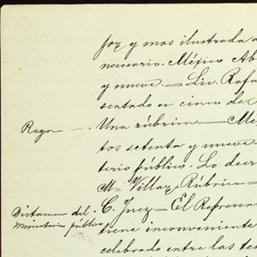 for y mas ilustrada a
necesario. México Ab
y nueve. — Lic. Rafa
sentado en cinco de
Razon — Una rúbrica — Mé
tos setenta y nueve
terio público. Lo decr
M. Villa, Rúbrica —
Dictamen del C. Juez — El Re
Ministerio público tiene inconveniente
celebrado entre las